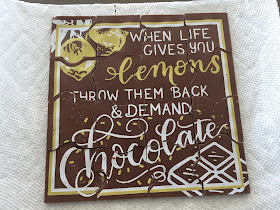 WHEN LIFE
GIVES YOU
lemons
THROW THEM BACK
& DEMAND
Chocolate